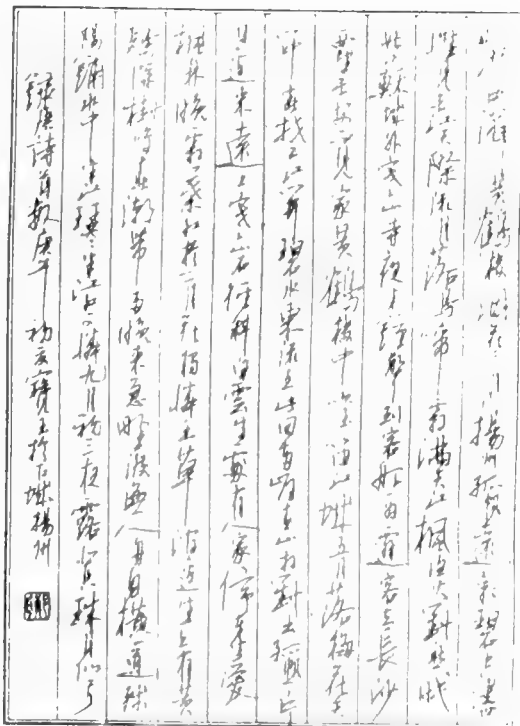 黃鶴樓烟花三月下揚州孤帆遠影碧空盡
惟見長江天際流月落烏啼霜滿天江楓漁火對愁眠
姑蘇城外寒山寺夜半鐘聲到客船一為遷客去長沙
西望長安不見家黃鶴樓中吹玉笛江城五月落梅花天
門中斷楚江開碧水東流至此回兩岸青山相對出孤帆一片
日邊來遠上寒山石徑斜白雲生處有人家停車坐愛
楓林晚霜葉紅於二月花獨憐幽草澗邊生上有黃
鸝深樹鳴春潮帶雨晚來急野渡無人舟自橫一道殘
陽鋪水中半江瑟瑟半江紅可憐九月初三夜露似真珠月似弓
錄唐詩首數庚午初夏寶玉於古城揚州